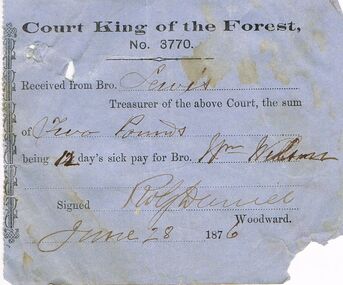 Court King of the Forest,
No. 3770.
Received from Bro. Lewis
Treasurer of the above Court, the sum
of Two Pounds
being 12 day's sick pay for Bro. Wm
Signed Daniel
Woodward.
June 28 1876